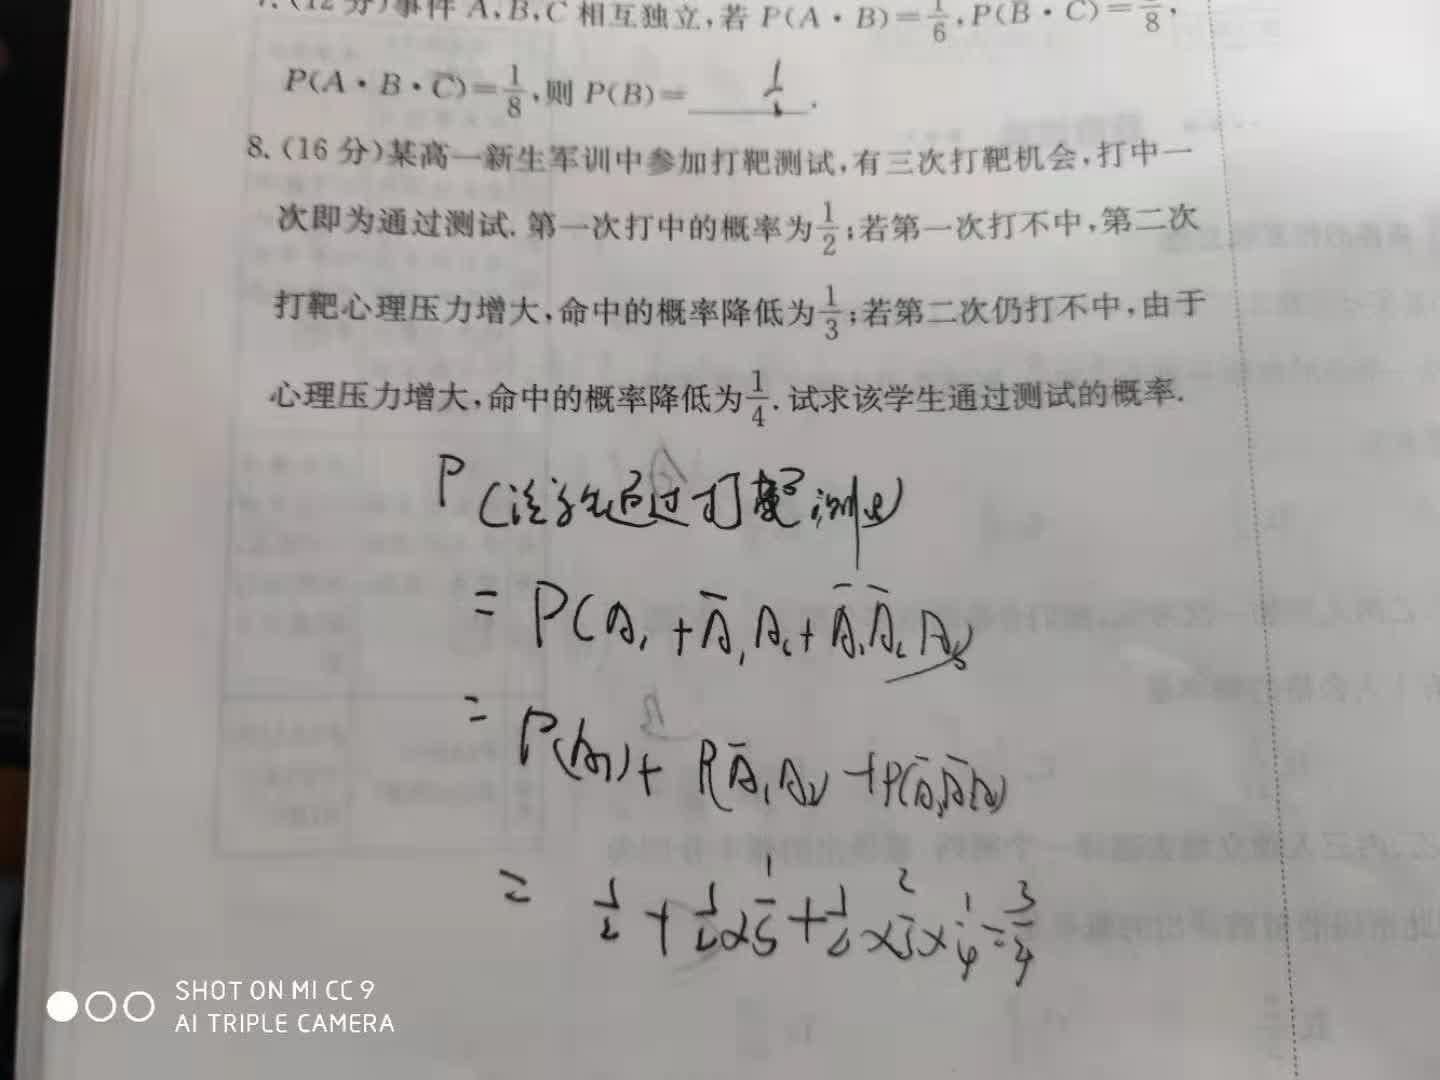 7.(12分)事件A,B,C相互独立,若P(A·B)=1/6,P(B̅·C)=1/8,
P(A·B·C̅)=1/8,则P(B)=____.
8.(16分)某高一新生军训中参加打靶测试,有三次打靶机会,打中一
次即为通过测试.第一次打中的概率为1/2;若第一次打不中,第二次
打靶心理压力增大,命中的概率降低为1/3;若第二次仍打不中,由于
心理压力增大,命中的概率降低为1/4.试求该学生通过测试的概率.
P(该学生通过打靶测试)
=P(A₁+A̅₁A₂+A̅₁A̅₂A₃)
=P(A₁)+P(A̅₁A₂)+P(A̅₁A̅₂A₃)
=1/2+1/2×1/3+1/2×2/3×1/4=3/4
SHOT ON MI CC 9
AI TRIPLE CAMERA